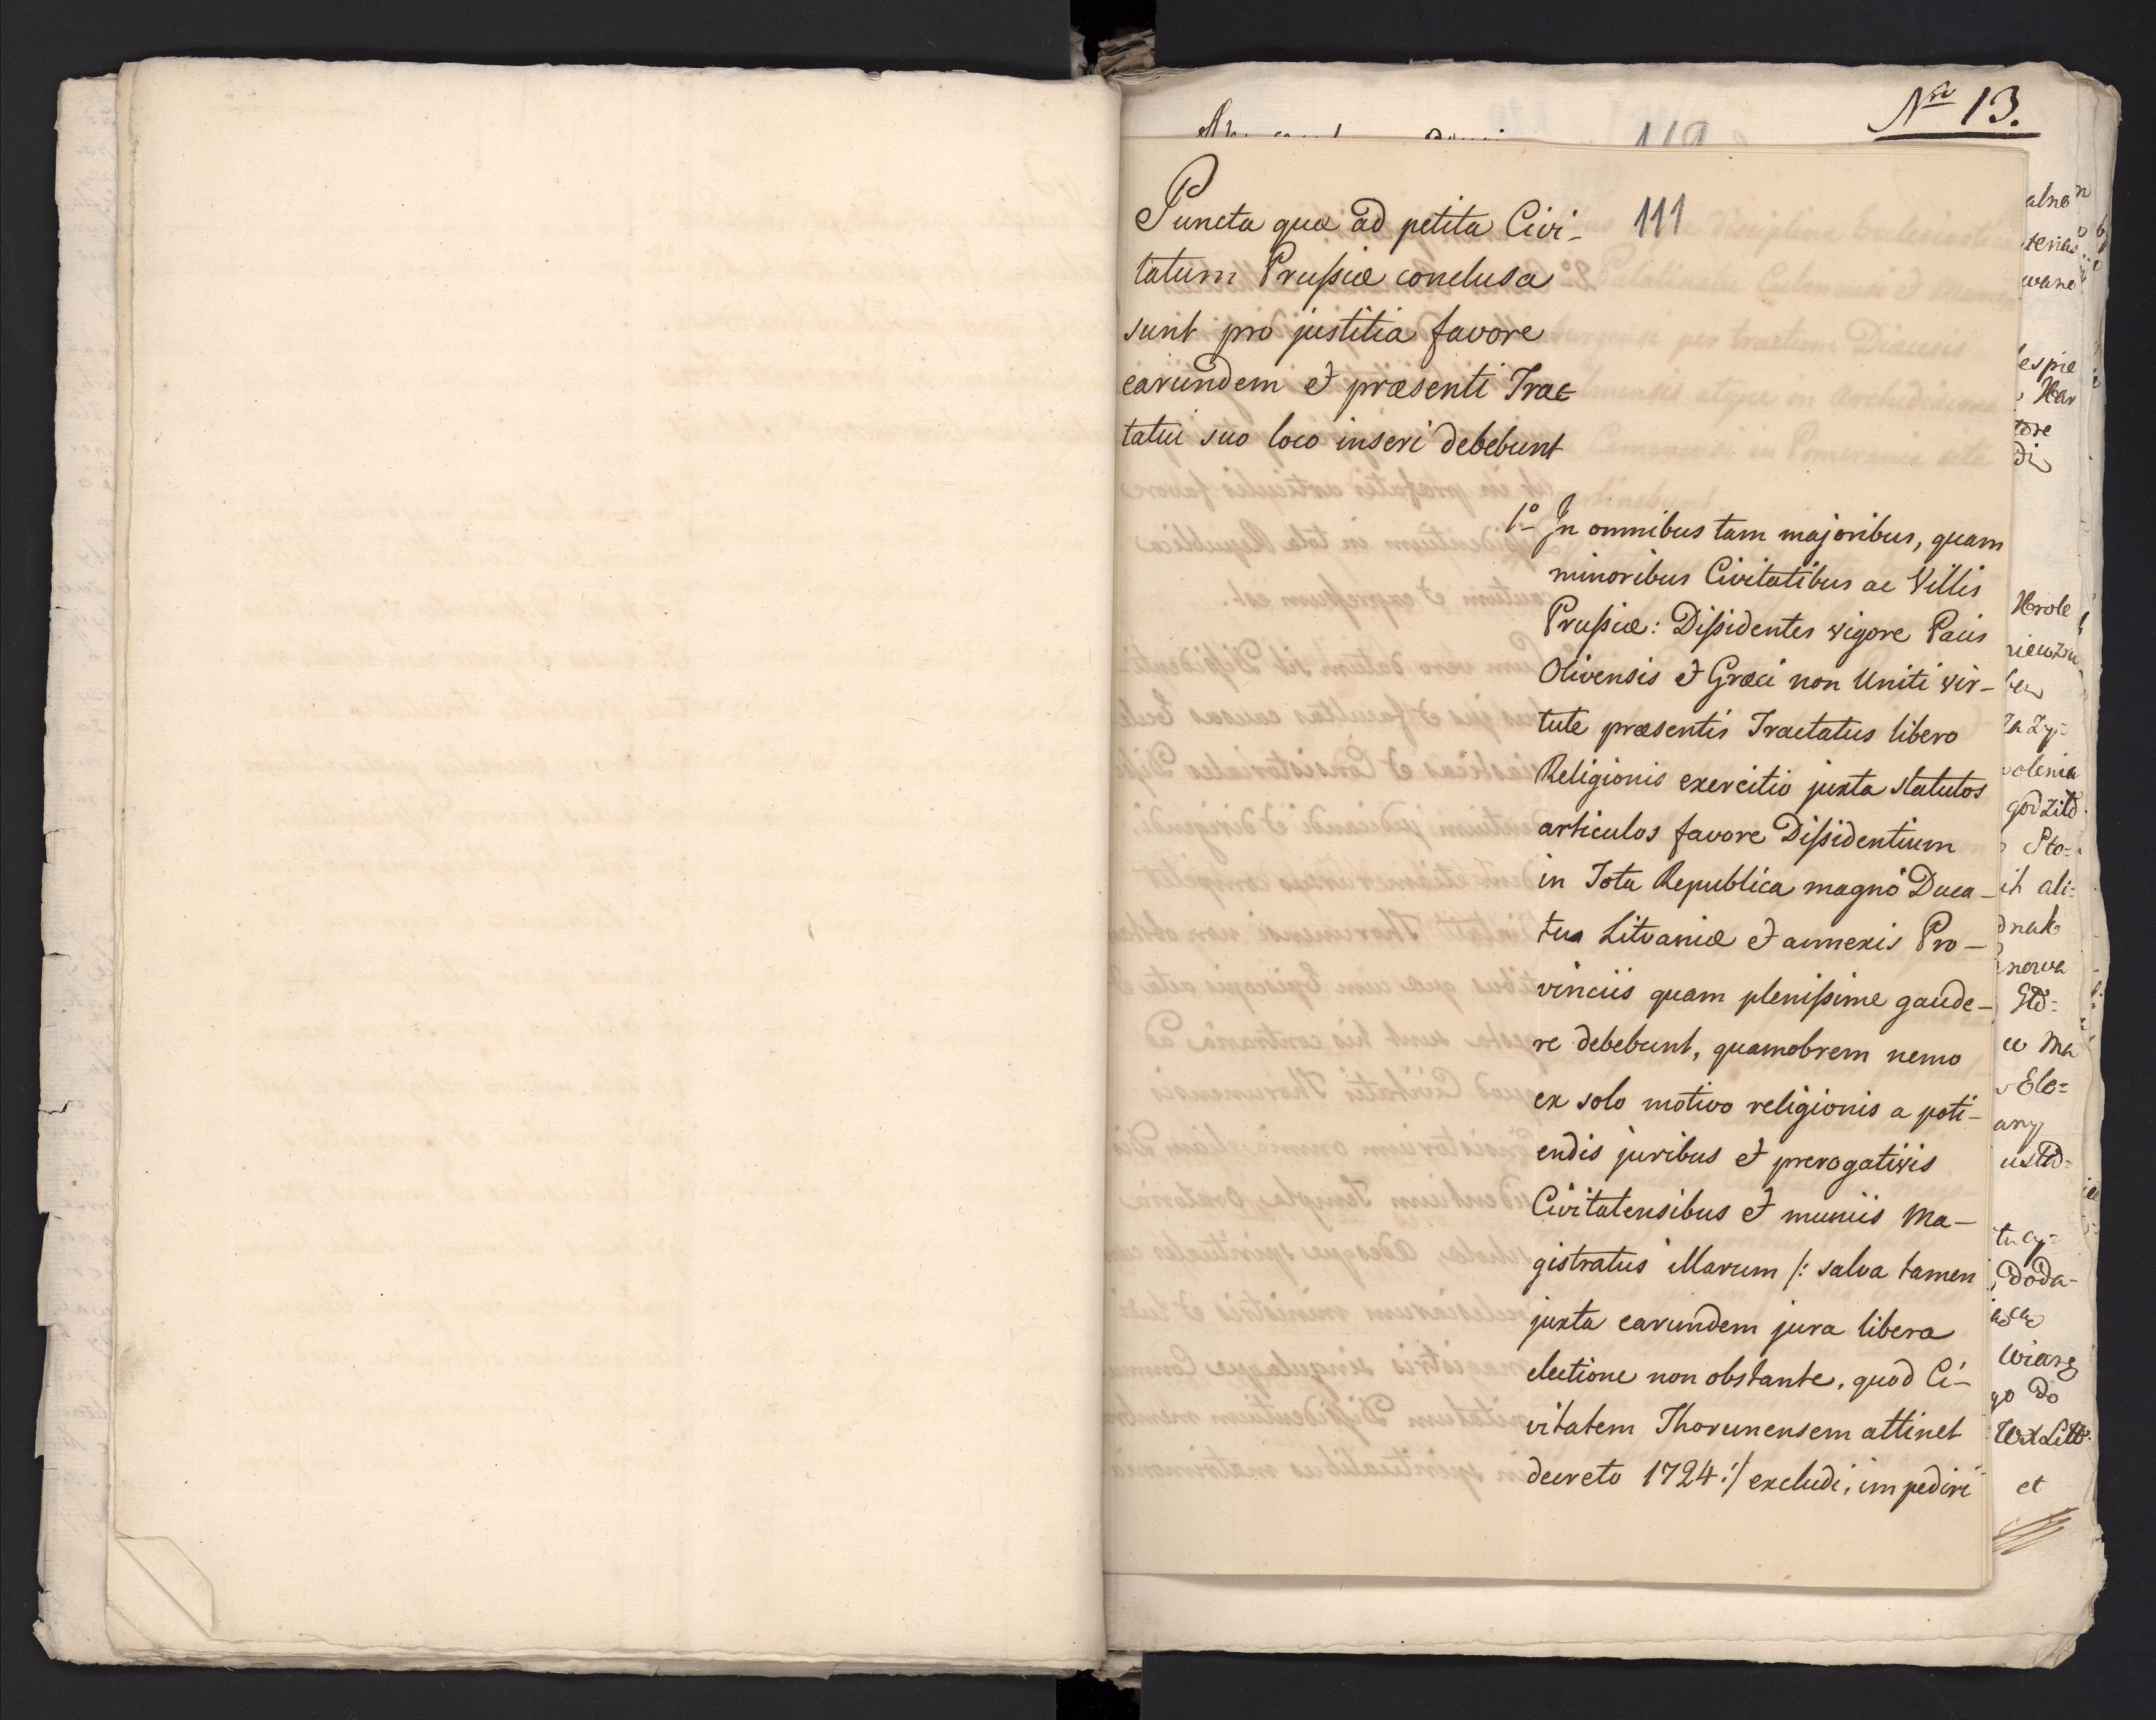 Nro 13.
111
Puncta quæ ad petita Civi-
tatum Prussiæ conclusa
sunt pro justitia favore
earundem et præsenti Trac
tatui suo loco inseri debebunt
1o In omnibus tam majoribus, quam
minoribus Civitatibus ac Villis
Prussiæ: Dissidentes vigore Pacis
Olivensis et Græci non Uniti vir-
tute præsentis Tractatus libero
Religionis exercitio juxta statutos
articulos favore Dissidentium
in Tota Republica magno Duca-
tus Litvaniæ et annexis Pro-
vinciis quam plenissime gaude-
re debebunt, quamobrem nemo
ex solo motivo religionis a poti-
endis juribus et prerogativis
Civitatensibus et muniis Ma-
gistratus illarum /: salva tamen
juxta earundem jura libera
electione non obstante, quod Ci-
vitatem Thorunensem attinet
decreto 1724 :/ excludi, impediri
alne
wane
espie
Har
di
olenia
godzild
Sto=
ali=
dnak
nowa
Std=
Ma
Ele=
any
doda-
wiarę
go do
WXLitt.
et